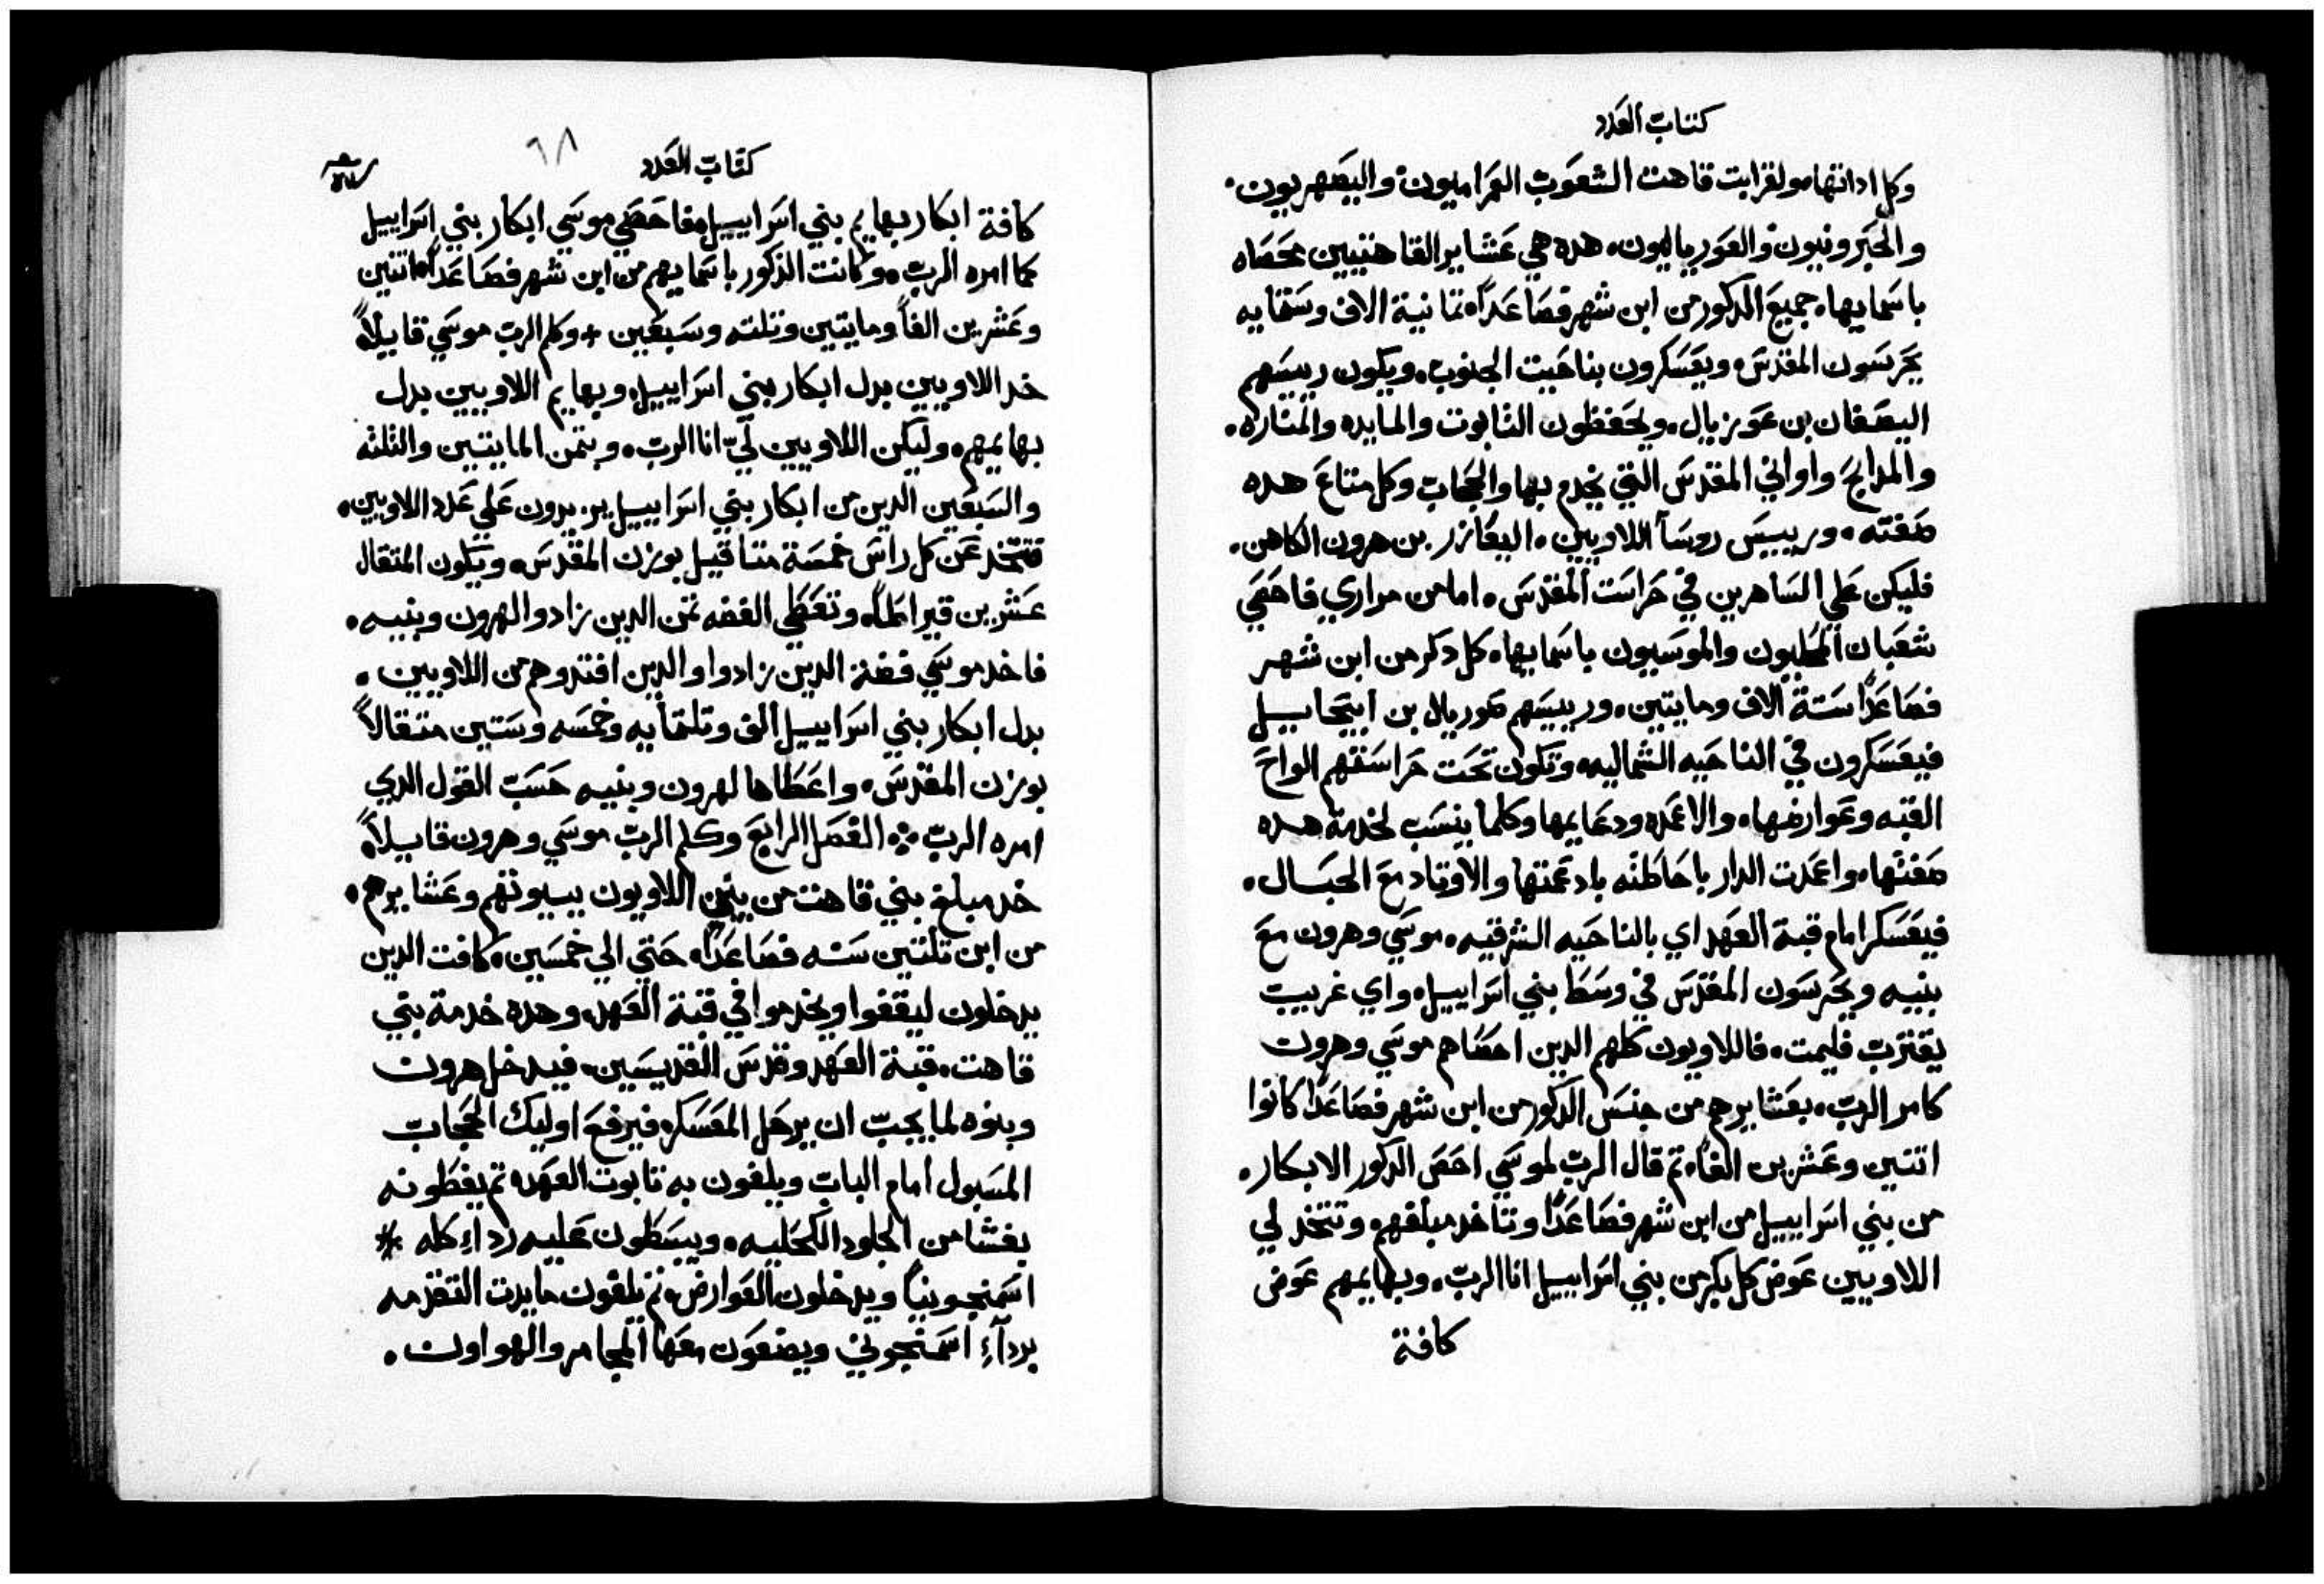 كتاب العدد
وكل اداتها مولقرابت قاهت الشعوب العمراميون والبصهريون.
والحبرونيون والعوريالبون. هده هي عشاير القاهتيين محصاه
باسمايها. جميع الدكور من ابن شهر فصاعداً. تمانية الاف وستمايه
يحرسون المقدس. ويعسكرون بناحيت الجنوب. ويكون رييسهم
اليصفان بن عوزيال. ويحفظون التابوت والمايده والمناره.
والمدابح واواني المقدس التي يخدم بها والحجاب وكل متاع هده
صفته. ورييس روسآ اللاويين. اليعازر بن هرون الكاهن.
فليكن علي الساهرين في حراست المقدس. اما من مراري فاحصي
شعبان المحليون والموسيون باسمايها. كل دكر من ابن شهر
فصاعداً ستة الاف ومايتين. ورييسهم صوريال بن ابيحاييل
فيعسكرون في الناحيه الشماليه. وتكون تحت حراستهم الواح
القبه وعوارضها. والاعمده ودعايمها وكلما ينسب لخدمة هده
صفتها. واعمدت الدار باحاطته بادعمتها والاوتاد مع الحبال.
فيعسكر امام قبة العهد اي بالناحيه الشرقيه. موسي وهرون مع
بنيه ويحرسون المقدس في وسط بني اسراييل. واي غريب
يقترب فليمت. فاللاويون كلهم الدين احصاهم موسي وهرون
كامر الرب. بعشايرهم من جنس الدكور من ابن شهر فصاعداً كانوا
اتنين وعشرين الفاً. تم قال الرب لموسي احص الدكور الابكار.
من بني اسراييل من ابن شهر فصاعداً وتاخد مبلغهم وتتخد لي
اللاويين عوض كل بكر من بني اسراييل انا الرب. وبهايمهم عوض
كافة
كتاب العدد
٦٨
كافة ابكار بهايم بني اسراييل. فاحصي موسي ابكار بني اسراييل
كما امره الرب. وكانت الدكور باسمايهم من ابن شهر فصاعداً. اتنين
وعشرين الفاً ومايتين وتلته وسبعين + وكلم الرب موسي قايلاً
خد اللاويين بدل ابكار بني اسراييل. وبهايم اللاويين بدل
بهايمهم. وليكن اللاويين لي انا الرب. وبتمن المايتين والتلته
والسبعين الدين من ابكار بني اسراييل يزيدون علي عدد اللاويين.
فتتخد عن كل راس خمسة متاقيل بوزن المقدس. ويكون المتقال
عشرين قيراطاً. وتعطي الفضه تمن الدين زادوا لهرون وبنيه.
فاخد موسي فضة الدين زادوا والدين افتدوهم من اللاويين.
بدل ابكار بني اسراييل الف وتلتمايه وخمسه وستين متقالاً
بوزن المقدس. واعطاها لهرون وبنيه حسب القول الدي
امره الرب ۞ الفصل الرابع وكلم الرب موسي وهرون قايلاً
خد مبلغ بني قاهت من بين اللاويون ببيوتهم وعشايرهم.
من ابن تلتين سنه فصاعداً. حتي الي خمسين. كافت الدين
يدخلون ليقفوا ويخدموا في قبة العهد. وهده خدمة بني
قاهت. قبة العهد وقدس القديسين. فيدخل هرون
وبنوه لما يجب ان يرحل المعسكر. فيرفع اوليك الحجاب
المسبول امام الباب ويلفون به تابوت العهد. تم يغطونه
بغشا من الجلود الكحليه. ويبسطون عليه رداء كله *
اسمنجونياً ويدخلون العوارض. تم يلفون مايدت التقدمه
بردآء اسمنجوني ويضعون معها المجامر والهواون.